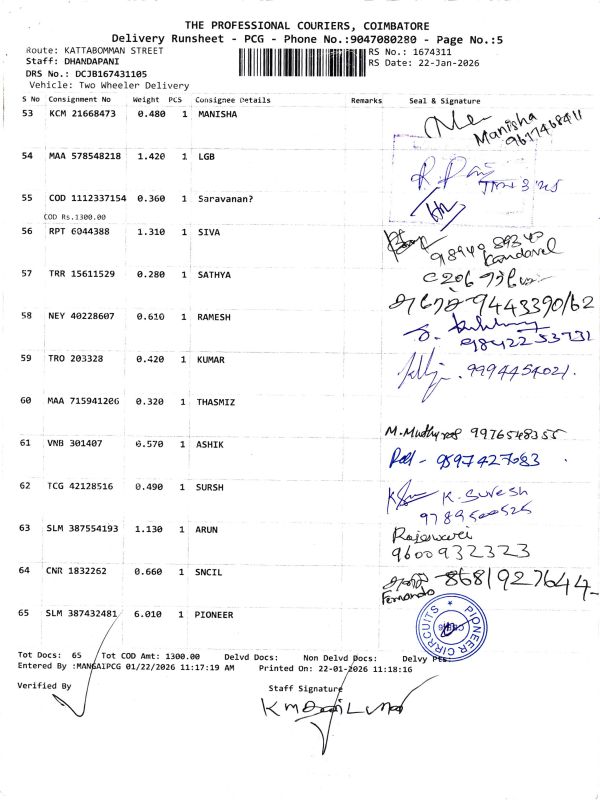 THE PROFESSIONAL COURIERS, COIMBATORE
Delivery Runsheet - PCG - Phone No.:9047080280 - Page No.:5
Route: KATTABOMMAN STREET
RS No.: 1674311
Staff: DHANDAPANI
RS Date: 22-Jan-2026
DRS No.: DCJB167431105
Vehicle: Two Wheeler Delivery
S No Consignment No Weight PCS Consignee Details Remarks Seal & Signature
53 KCM 21668473 0.480 1 MANISHA
Manisha
9617468411
54 MAA 578548218 1.420 1 LGB
55 COD 1112337154 0.360 1 Saravanan?
COD Rs.1300.00
56 RPT 6044388 1.310 1 SIVA
57 TRR 15611529 0.280 1 SATHYA
C206
9443390162
58 NEY 40228607 0.610 1 RAMESH
9842253731
59 TRO 203328 0.420 1 KUMAR
9994454021.
60 MAA 715941206 0.320 1 THASMIZ
9976548355
61 VNB 301407 0.570 1 ASHIK
9597427083
62 TCG 42128516 0.490 1 SURSH
K. Suresh
9789500525
63 SLM 387554193 1.130 1 ARUN
Rajeswari
9600932323
64 CNR 1832262 0.660 1 SNCIL
8681927644
Fernando
65 SLM 387432481 6.010 1 PIONEER
PIONEER CIRCUITS
Tot Docs: 65 Tot COD Amt: 1300.00 Delvd Docs: Non Delvd Docs: Delvy Pts:
Entered By :MANGAIPCG 01/22/2026 11:17:19 AM Printed On: 22-01-2026 11:18:16
Verified By
Staff Signature